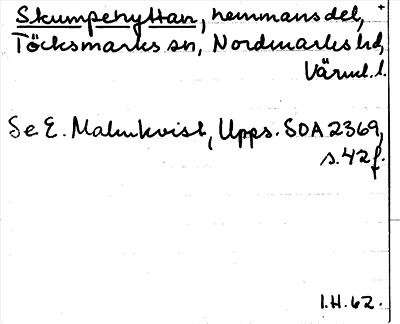 Skumpehyttan, hemmansdel,
Töcksmarks sn, Nordmarks hd,
Värml. l.
Se E. Malmkvist, Upps. SOA 2369,
s. 42 f.
I.H. 62.